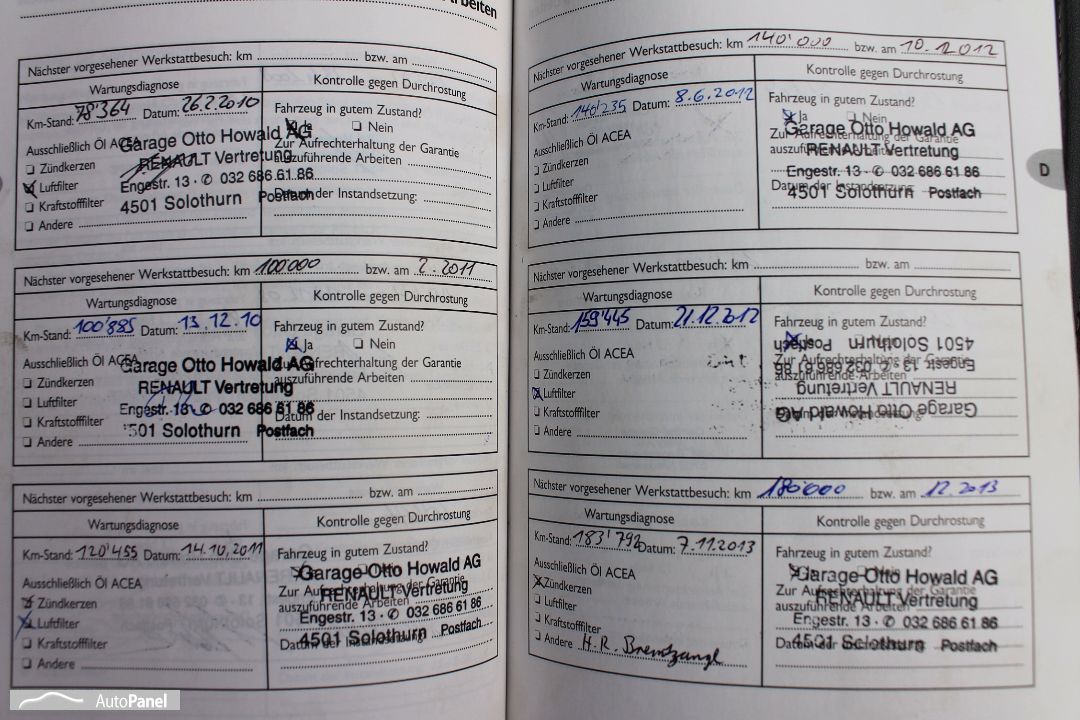 Arbeiten
Nächster vorgesehener Werkstattbesuch: km bzw. am
Wartungsdiagnose Kontrolle gegen Durchrostung
Km-Stand: 78'364 Datum: 26.2.2010 Fahrzeug in gutem Zustand?
Ja Nein
Ausschließlich Öl ACEA Zur Aufrechterhaltung der Garantie
auszuführende Arbeiten
Zündkerzen
Luftfilter
Kraftstofffilter Datum der Instandsetzung:
Andere
Garage Otto Howald AG
RENAULT Vertretung
Engestr. 13 · ✆ 032 686 61 86
4501 Solothurn Postfach
Nächster vorgesehener Werkstattbesuch: km 100'000 bzw. am 2.2011
Wartungsdiagnose Kontrolle gegen Durchrostung
Km-Stand: 100'885 Datum: 13.12.10 Fahrzeug in gutem Zustand?
Ja Nein
Ausschließlich Öl ACEA Zur Aufrechterhaltung der Garantie
auszuführende Arbeiten
Zündkerzen
Luftfilter
Kraftstofffilter Datum der Instandsetzung:
Andere
Garage Otto Howald AG
RENAULT Vertretung
Engestr. 13 · ✆ 032 686 61 86
4501 Solothurn Postfach
Nächster vorgesehener Werkstattbesuch: km bzw. am
Wartungsdiagnose Kontrolle gegen Durchrostung
Km-Stand: 120'455 Datum: 14.10.2011 Fahrzeug in gutem Zustand?
Ausschließlich Öl ACEA Zur Aufrechterhaltung der Garantie
auszuführende Arbeiten
Zündkerzen
Luftfilter
Kraftstofffilter Datum der Instandsetzung
Andere
Garage Otto Howald AG
RENAULT Vertretung
Engestr. 13 · ✆ 032 686 61 86
4501 Solothurn Postfach
Nächster vorgesehener Werkstattbesuch: km 140'000 bzw. am 10.2012
Wartungsdiagnose Kontrolle gegen Durchrostung
Km-Stand: 140'235 Datum: 8.6.2012 Fahrzeug in gutem Zustand?
Ja Nein
Ausschließlich Öl ACEA Zur Aufrechterhaltung der Garantie
auszuführende Arbeiten
Zündkerzen
Luftfilter
Kraftstofffilter Datum der Instandsetzung
Andere
Garage Otto Howald AG
RENAULT Vertretung
Engestr. 13 · ✆ 032 686 61 86
4501 Solothurn Postfach
D
Nächster vorgesehener Werkstattbesuch: km bzw. am
Wartungsdiagnose Kontrolle gegen Durchrostung
Km-Stand: 159'445 Datum: 21.12.2012 Fahrzeug in gutem Zustand?
Ausschließlich Öl ACEA Zur Aufrechterhaltung der Garantie
auszuführende Arbeiten
Zündkerzen
Luftfilter
Kraftstofffilter
Andere
Garage Otto Howald AG
RENAULT Vertretung
Engestr. 13 · ✆ 032 686 61 86
4501 Solothurn Postfach
Nächster vorgesehener Werkstattbesuch: km 180'000 bzw. am 12.2013
Wartungsdiagnose Kontrolle gegen Durchrostung
Km-Stand: 183'792 Datum: 7.11.2013 Fahrzeug in gutem Zustand?
Ausschließlich Öl ACEA Zur Aufrechterhaltung der Garantie
auszuführende Arbeiten
Zündkerzen
Luftfilter
Kraftstofffilter Datum der Instandsetzung
Andere H.R. Bremszangl
Garage Otto Howald AG
RENAULT Vertretung
Engestr. 13 · ✆ 032 686 61 86
4501 Solothurn Postfach
AutoPanel